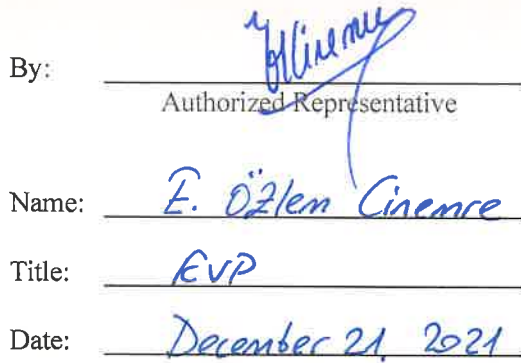 By:
Authorized Representative
Name: E. Özlem Cinemre
Title: EVP
Date: December 21, 2021